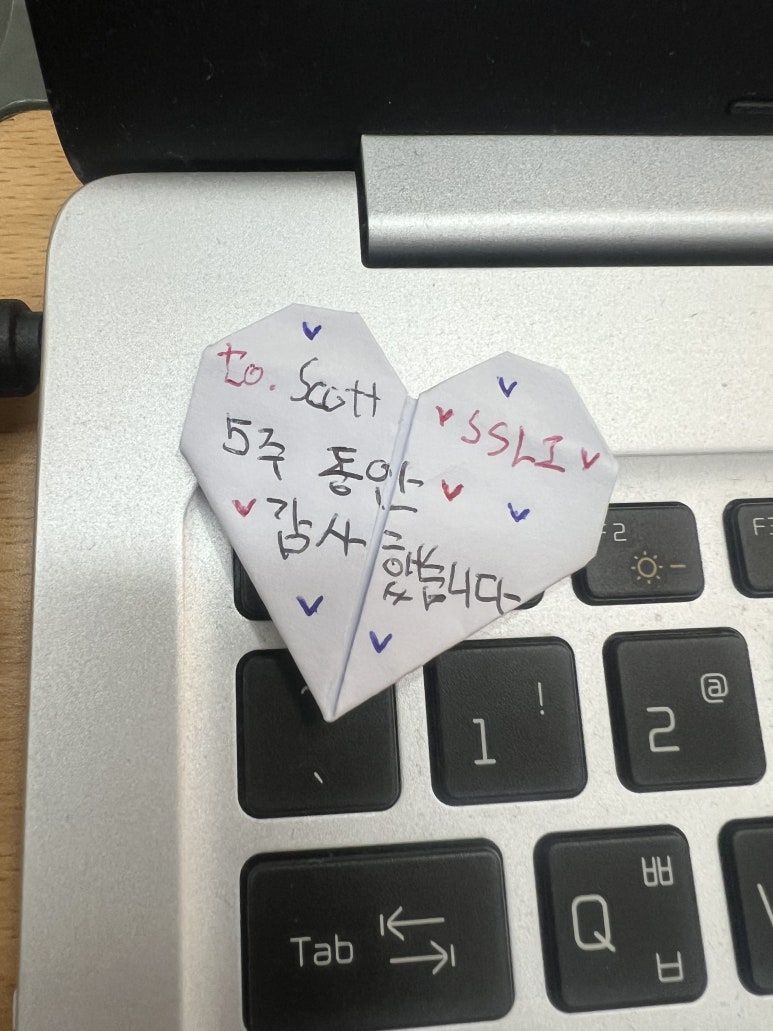 to. Scott
5주 동안
감사
했습니다
SSLI
F2
1 !
2 @
Tab
Q ㅃ
ㅂ